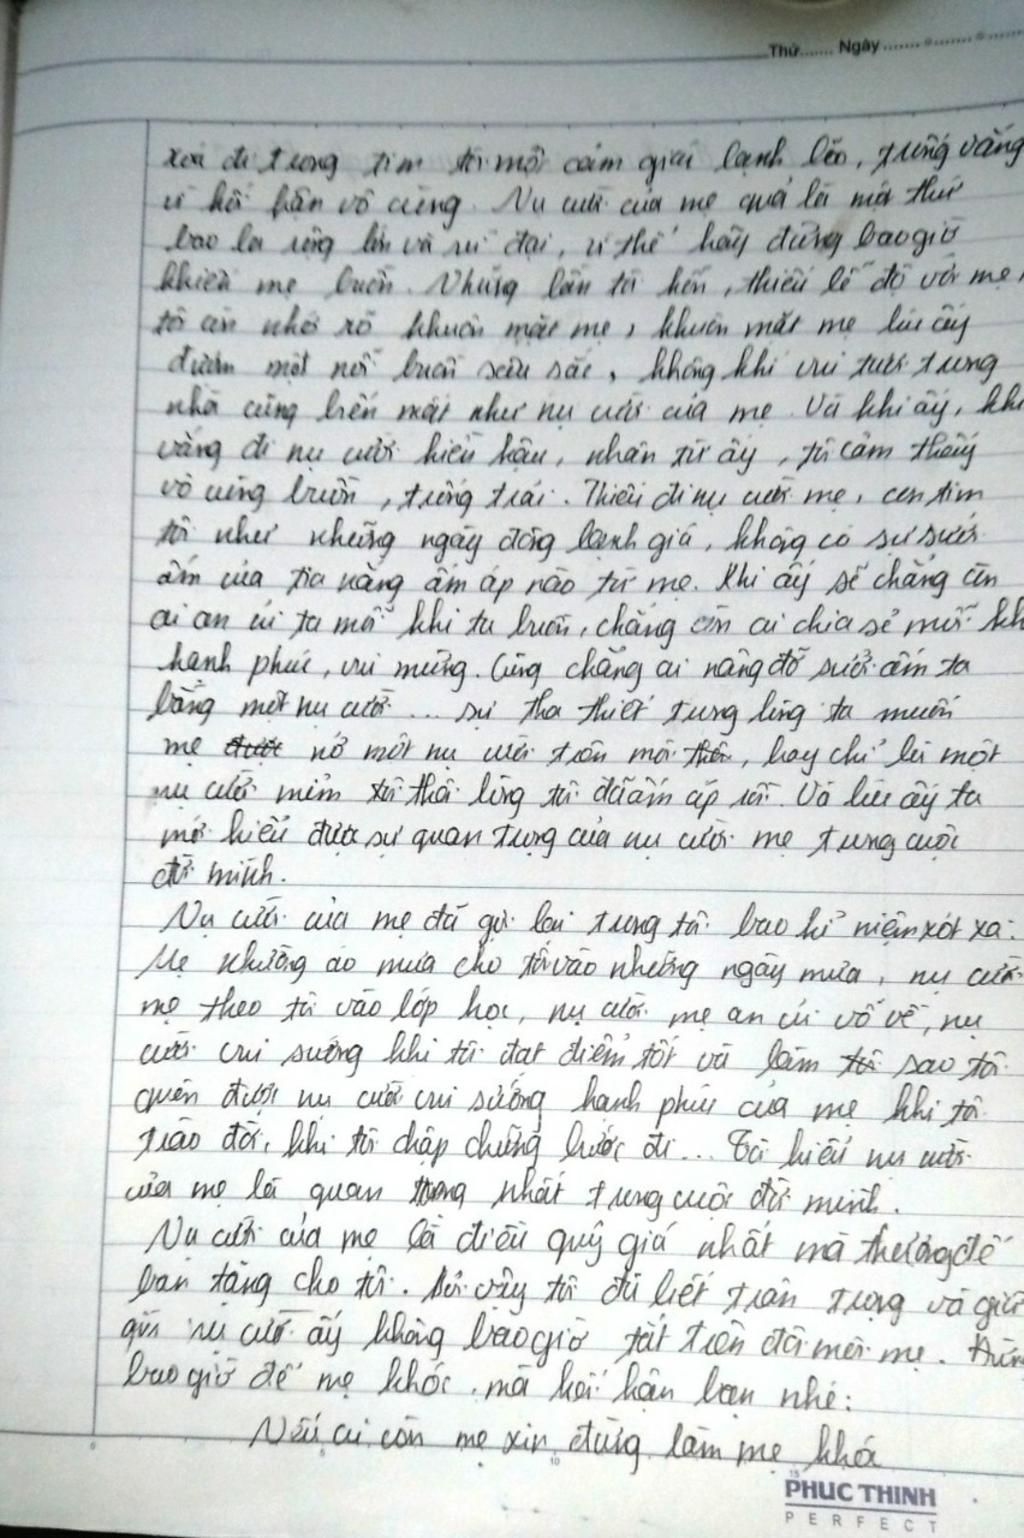 Thứ....... Ngày
xoá đi trong tim tôi một cảm giác lạnh lẽo, trống vắng
vì hối hận vô cùng. Nụ cười của mẹ quả là một thứ
bao la rộng lớn và vĩ đại, vì thế hãy đừng bao giờ
khiến mẹ buồn. Những lần tôi hỗn, thiếu lễ độ với mẹ,
tôi còn nhớ rõ khuôn mặt mẹ, khuôn mặt mẹ lúc ấy
đượm một nỗi buồn sâu sắc, không khí vui tươi trong
nhà cũng biến mất như nụ cười của mẹ. Và khi ấy, khi
vắng đi nụ cười hiền hậu, nhân từ ấy, tôi cảm thấy
vô cùng buồn, trống trải. Thiếu đi nụ cười mẹ, con tim
tôi như những ngày đông lạnh giá, không có sự sưởi
ấm của tia nắng ấm áp nào từ mẹ. Khi ấy sẽ chẳng còn
ai an ủi ta mỗi khi ta buồn, chẳng còn ai chia sẻ mỗi kh
hạnh phúc, vui mừng. Cũng chẳng ai nâng đỡ sưởi ấm ta
bằng một nụ cười... sự tha thiết trong lòng ta muốn
mẹ được nở một nụ cười trên môi, hay chỉ là một
nụ cười mỉm thôi lòng tôi đã ấm áp rồi. Và lúc ấy ta
mới hiểu được sự quan trọng của nụ cười mẹ trong cuộc
đời mình.
Nụ cười của mẹ đã gợi lại trong tôi bao kỉ niệm xót xa.
Mẹ nhường áo mưa cho tôi vào những ngày mưa, nụ cười
mẹ theo tôi vào lớp học, nụ cười mẹ an ủi vỗ về, nụ
cười vui sướng khi tôi đạt điểm tốt và làm sao tôi
quên được nụ cười vui sướng hạnh phúc của mẹ khi tôi
trào đời, khi tôi chập chững bước đi... Tôi hiểu nụ cười
của mẹ là quan trọng nhất trong cuộc đời mình.
Nụ cười của mẹ là điều quý giá nhất mà thượng đế
ban tặng cho tôi. Bởi vậy tôi đã biết trân trọng và giữ
gìn nụ cười ấy không bao giờ tắt trên đôi môi mẹ. Đừng
bao giờ để mẹ khóc, mà hối hận bạn nhé:
Nếu ai còn mẹ xin đừng làm mẹ khó
PHUC THINH
PERFECT